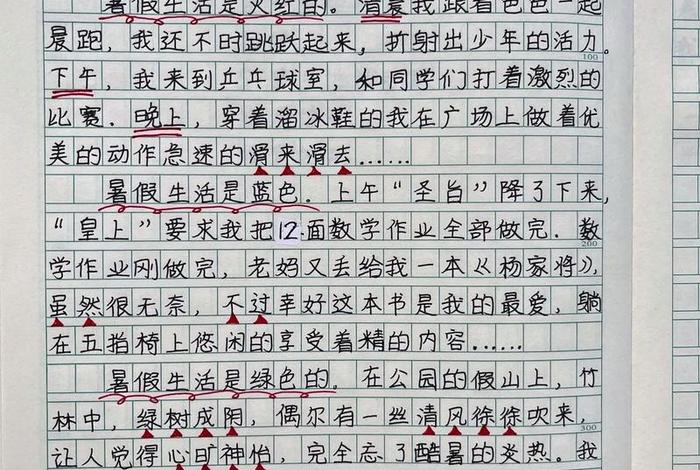 暑假生活是火红的。清晨我跟着爸爸一起
晨跑，我还不时跳跃起来，折射出少年的活力。
100
下午，我来到乒乓球室，和同学们打着激烈的
比赛．晚上，穿着溜冰鞋的我在广场上做着优
美的动作急速的滑来滑去……
暑假生活是蓝色．上午“圣旨”降了下来，
“皇上”要求我把12面数学作业全部做完．数
200
学作业刚做完，老妈又丢给我一本《杨家将》，
虽然很无奈，不过幸好这本书是我的最爱，躺
在五指椅上悠闲的享受着精的内容……
暑假生活是绿色的．在公园的假山上，竹
林中，绿树成阴，偶尔有一丝清风徐徐吹来，
300
让人觉得心旷神怡，完全忘了酷暑的炎热．我